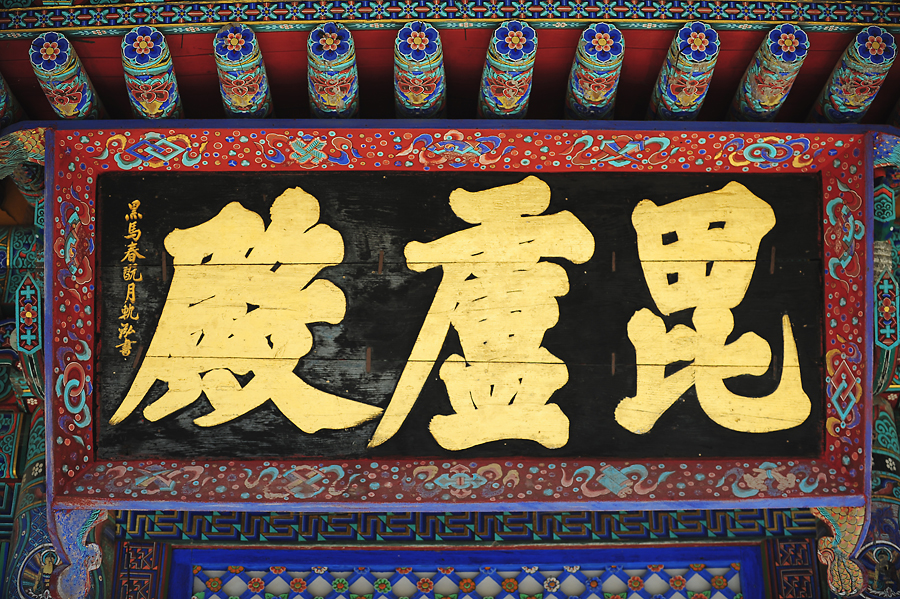 毘盧殿
黑馬春翫月軌泓書